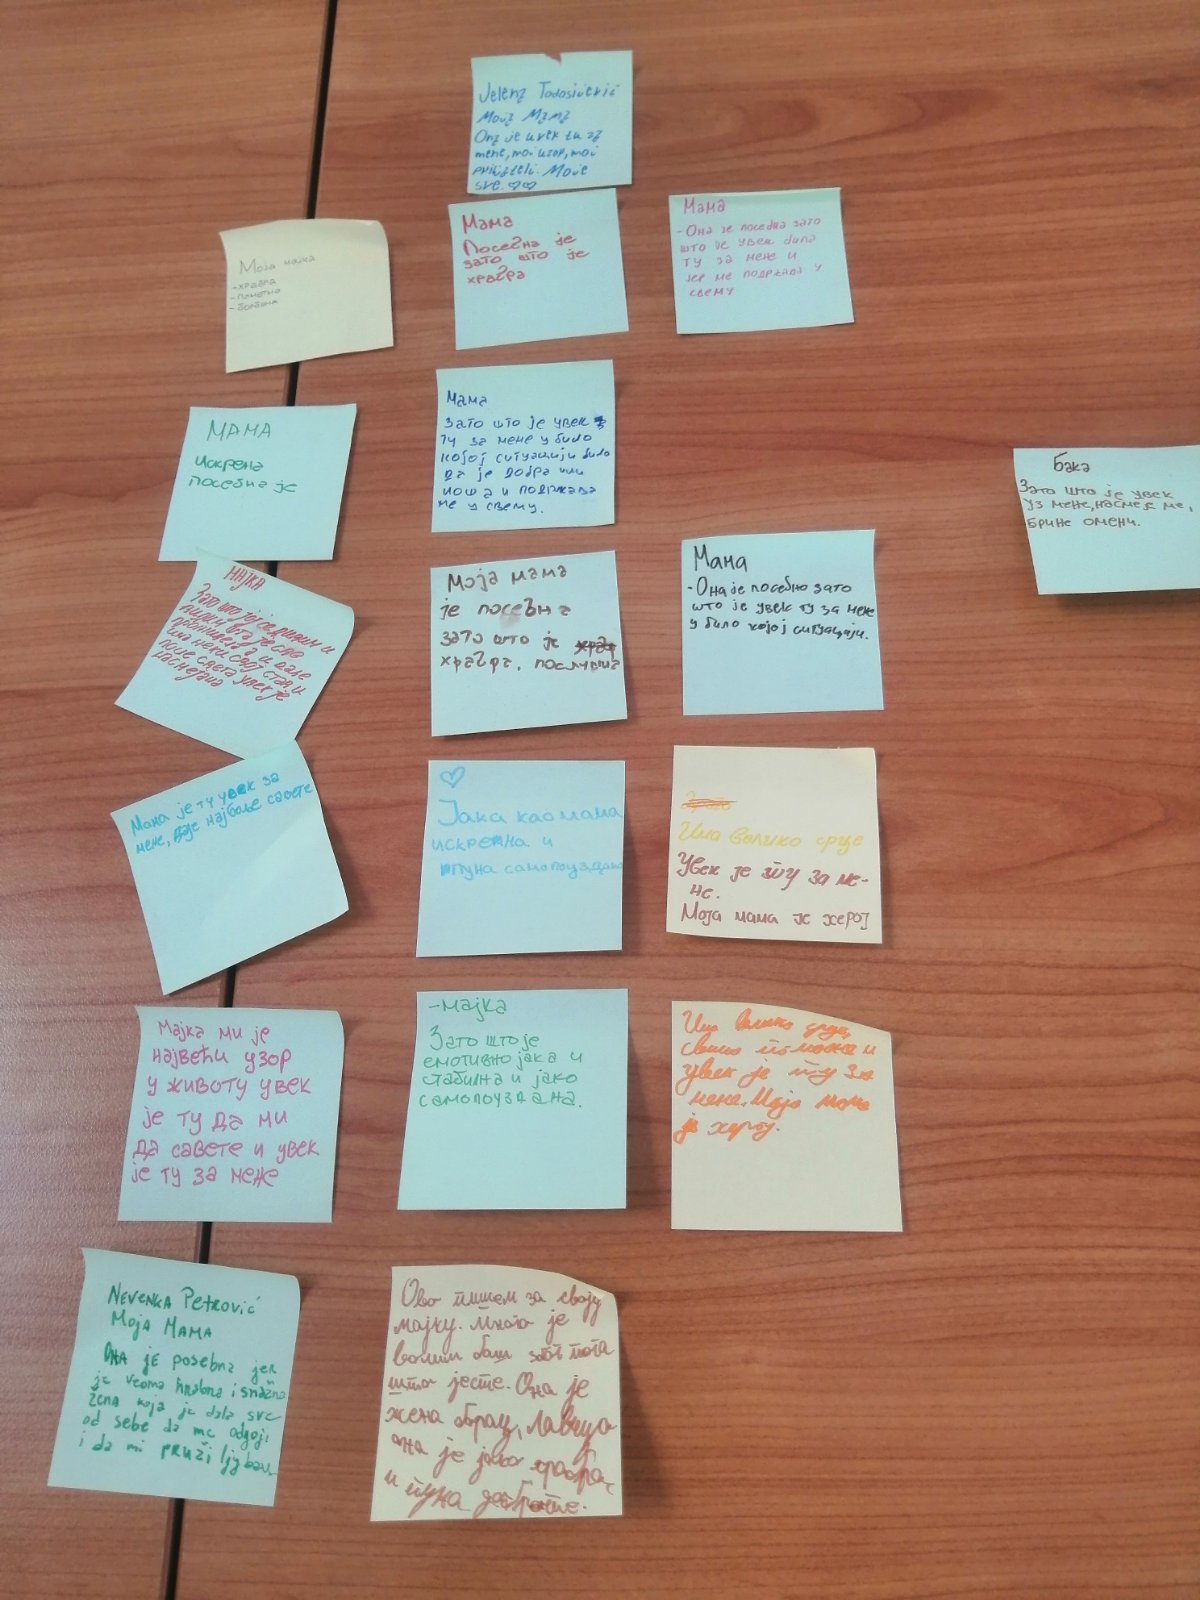 Jelena Todosijević
Moja Mama
Ona je uvek tu za
mene, moj uzor, moj
prijatelj. Moje
sve. ♡♡
Мама
Посебна је
зато што је
храбра
Мама
- Она је посебна зато
што је увек била
ту за мене и
јер ме подржава у
свему
Моја мајка
- храбра
- паметна
- борбена
МАМА
искрена
посебна је
Мама
Зато што је увек
ту за мене у било
којој ситуацији било
да је добра или
лоша и подржава
ме у свему.
Бака
Зато што је увек
уз мене, насмеје ме,
брине о мени.
МАЈКА
Зато што јој се дивим и
има неки свој став и
после свега увек је
насмејана
Моја мама
је посебна
зато што је
храбра, послушна
Мама
- Она је посебно зато
што је увек ту за мене
у било којој ситуацији.
Мама је ту увек за
мене, даје најбоље савете
♡
Јака као мама
искрена и
пуна самопоуздања
Има велико срце
Увек је ту за ме-
не.
Моја мама је херој
Мајка ми је
највећи узор
у животу увек
је ту да ми
да савете и увек
је ту за мене
- мајка
Зато што је
емотивно јака и
стабилна и јако
самопоуздана.
Има велико срце,
свима помаже и
увек је ту за
мене. Моја мама
је херој.
Nevenka Petrović
Moja Mama
Ona je posebna jer
je veoma hrabra i snažna
žena koja je dala sve
od sebe da me odgoji
i da mi pruži ljubav.
Ово пишем за своју
мајку. Много је
волим баш због тога
што јесте. Она је
жена борац, лавица
она је јако храбра,
и пуна доброте.